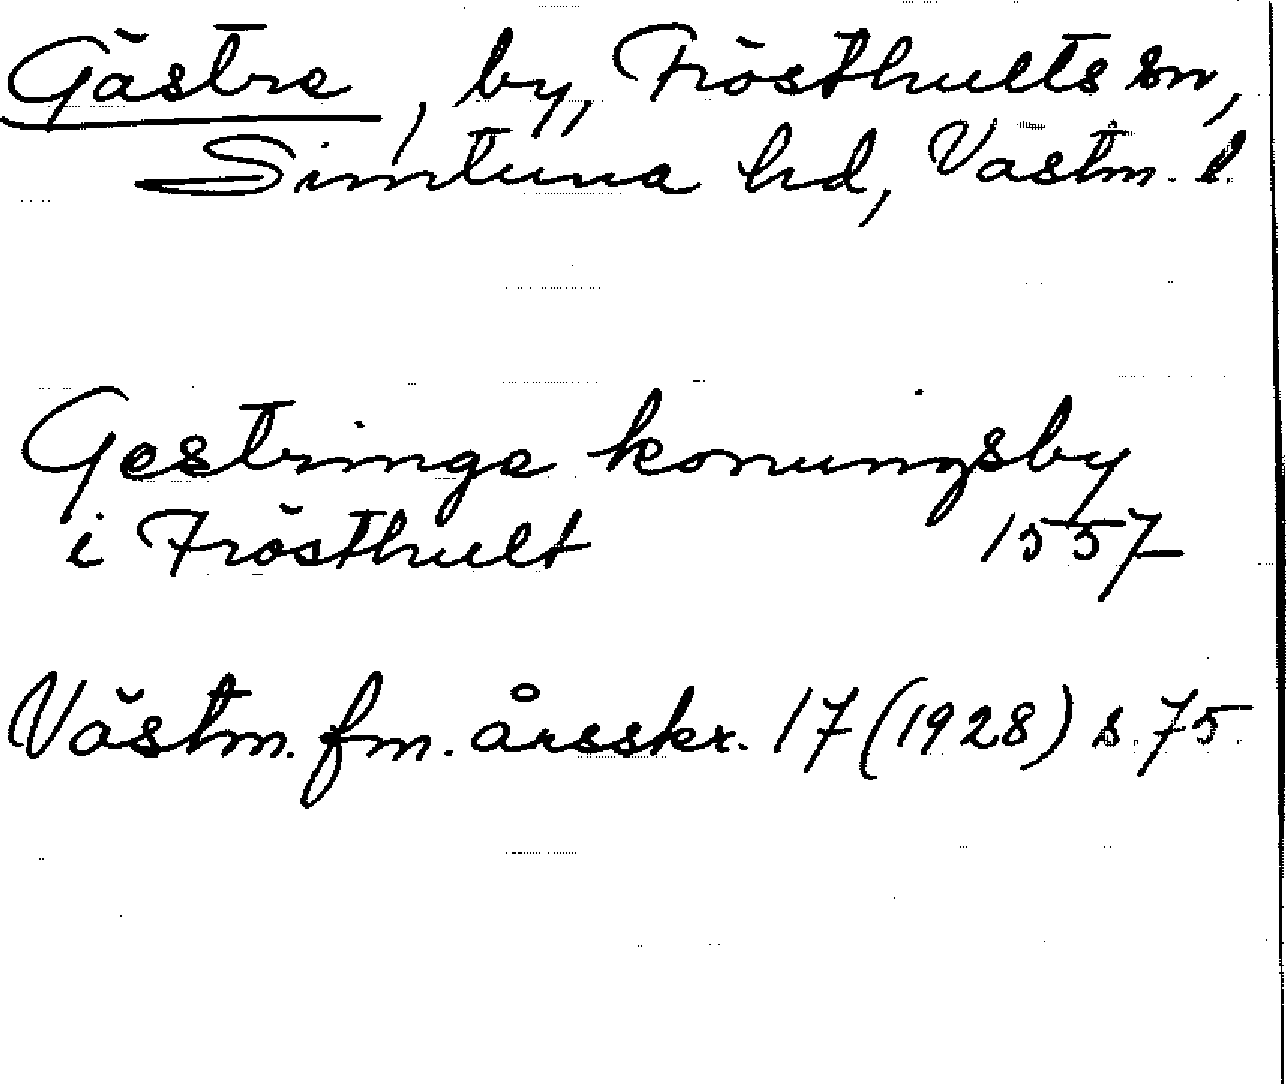 Gästre, by, Frösthults sn,
Simtuna hd, Västm. l.
Gestringe konungsby
i Frösthult 1557
Västm. fm. årsskr. 17 (1928) s. 75.